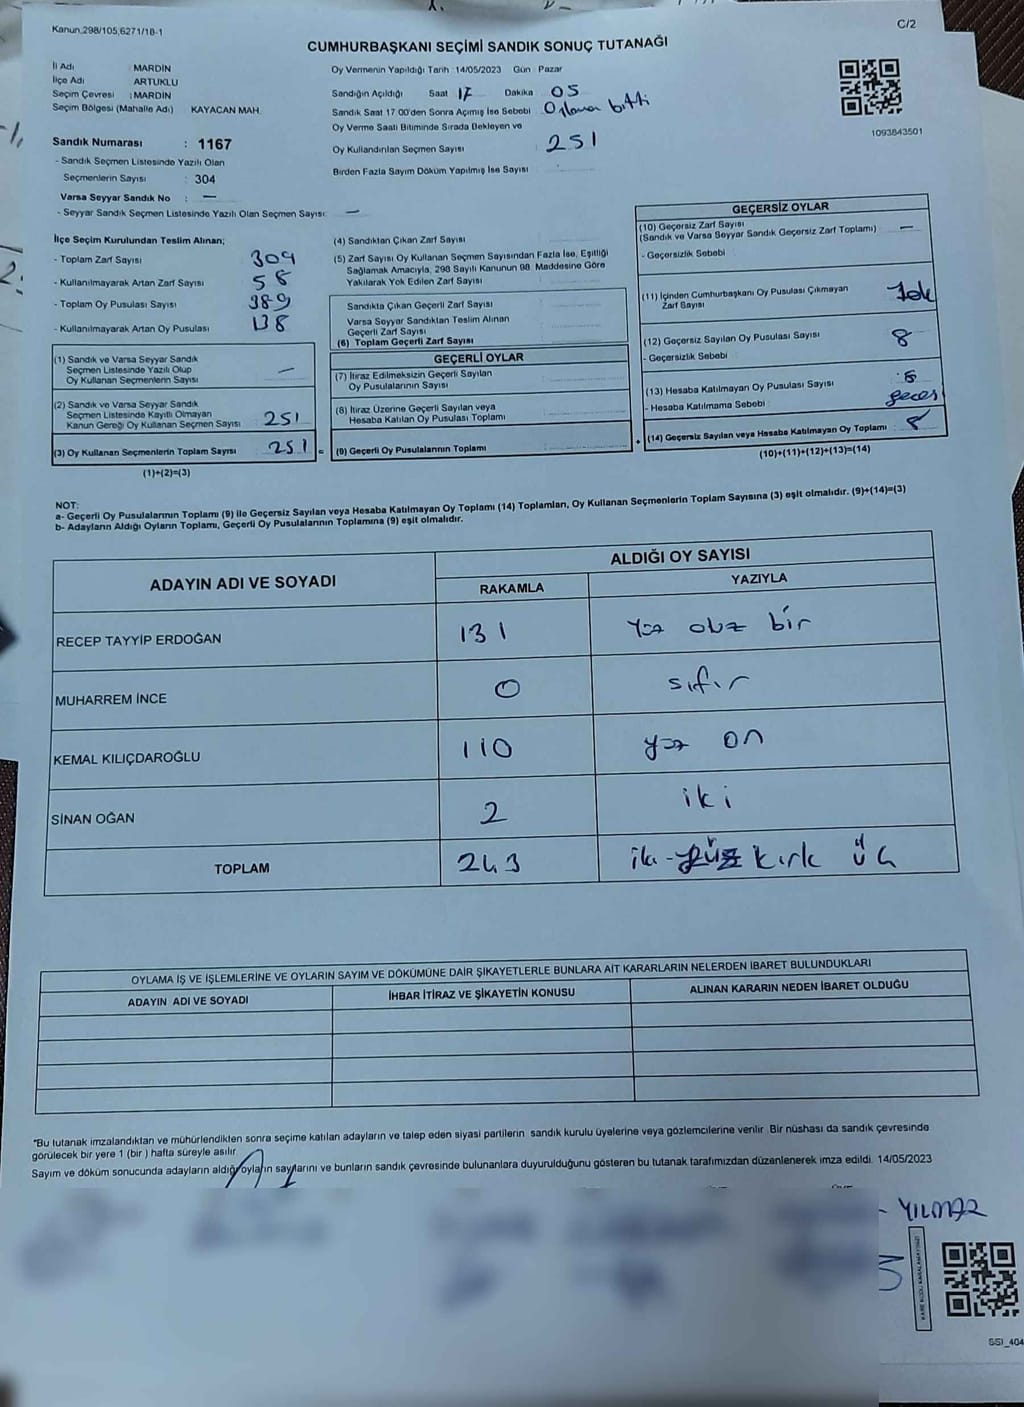 Kanun.298/105,6271/18-1
C/2
CUMHURBAŞKANI SEÇİMİ SANDIK SONUÇ TUTANAĞI
İl Adı : MARDİN
İlçe Adı : ARTUKLU
Seçim Çevresi : MARDİN
Seçim Bölgesi (Mahalle Adı) : KAYACAN MAH.
Oy Vermenin Yapıldığı Tarih :14/05/2023 Gün : Pazar
Sandığın Açıldığı Saat 17 Dakika 05
Sandık Saat 17:00'den Sonra Açılmış İse Sebebi : Oylama bitti
Oy Verme Saati Bitiminde Sırada Bekleyen ve
Oy Kullandırılan Seçmen Sayısı : 251
Birden Fazla Sayım Döküm Yapılmış İse Sayısı :
1093843501
Sandık Numarası : 1167
- Sandık Seçmen Listesinde Yazılı Olan
Seçmenlerin Sayısı : 304
Varsa Seyyar Sandık No : —
- Seyyar Sandık Seçmen Listesinde Yazılı Olan Seçmen Sayısı: —
İlçe Seçim Kurulundan Teslim Alınan;
- Toplam Zarf Sayısı : 309
- Kullanılmayarak Artan Zarf Sayısı : 58
- Toplam Oy Pusulası Sayısı : 389
- Kullanılmayarak Artan Oy Pusulası : 138
(1) Sandık ve Varsa Seyyar Sandık
Seçmen Listesinde Yazılı Olup
Oy Kullanan Seçmenlerin Sayısı : —
(2) Sandık ve Varsa Seyyar Sandık
Seçmen Listesinde Kayıtlı Olmayan
Kanun Gereği Oy Kullanan Seçmen Sayısı : 251
(3) Oy Kullanan Seçmenlerin Toplam Sayısı : 251 =
(1)+(2)=(3)
(4) Sandıktan Çıkan Zarf Sayısı :
(5) Zarf Sayısı Oy Kullanan Seçmen Sayısından Fazla İse, Eşitliği
Sağlamak Amacıyla, 298 Sayılı Kanunun 98. Maddesine Göre
Yakılarak Yok Edilen Zarf Sayısı :
Sandıkta Çıkan Geçerli Zarf Sayısı :
Varsa Seyyar Sandıktan Teslim Alınan
Geçerli Zarf Sayısı :
(6) Toplam Geçerli Zarf Sayısı :
GEÇERLİ OYLAR
(7) İtiraz Edilmeksizin Geçerli Sayılan
Oy Pusulalarının Sayısı :
(8) İtiraz Üzerine Geçerli Sayılan veya
Hesaba Katılan Oy Pusulası Toplamı :
(9) Geçerli Oy Pusulalarının Toplamı : +
GEÇERSİZ OYLAR
(10) Geçersiz Zarf Sayısı
(Sandık ve Varsa Seyyar Sandık Geçersiz Zarf Toplamı) : —
- Geçersizlik Sebebi :
(11) İçinden Cumhurbaşkanı Oy Pusulası Çıkmayan
Zarf Sayısı : Yok
(12) Geçersiz Sayılan Oy Pusulası Sayısı : 8
- Geçersizlik Sebebi :
(13) Hesaba Katılmayan Oy Pusulası Sayısı :
- Hesaba Katılmama Sebebi :
(14) Geçersiz Sayılan veya Hesaba Katılmayan Oy Toplamı : 8
(10)+(11)+(12)+(13)=(14)
NOT:
a- Geçerli Oy Pusulalarının Toplamı (9) ile Geçersiz Sayılan veya Hesaba Katılmayan Oy Toplamı (14) Toplamları, Oy Kullanan Seçmenlerin Toplam Sayısına (3) eşit olmalıdır. (9)+(14)=(3)
b- Adayların Aldığı Oyların Toplamı, Geçerli Oy Pusulalarının Toplamına (9) eşit olmalıdır.
ADAYIN ADI VE SOYADI ALDIĞI OY SAYISI
RAKAMLA YAZIYLA
RECEP TAYYİP ERDOĞAN 131 Yüz otuz bir
MUHARREM İNCE 0 sıfır
KEMAL KILIÇDAROĞLU 110 yüz on
SİNAN OĞAN 2 iki
TOPLAM 243 iki-yüz kırk üç
OYLAMA İŞ VE İŞLEMLERİNE VE OYLARIN SAYIM VE DÖKÜMÜNE DAİR ŞİKAYETLERLE BUNLARA AİT KARARLARIN NELERDEN İBARET BULUNDUKLARI
ADAYIN ADI VE SOYADI İHBAR İTİRAZ VE ŞİKAYETİN KONUSU ALINAN KARARIN NEDEN İBARET OLDUĞU
*Bu tutanak imzalandıktan ve mühürlendikten sonra seçime katılan adayların ve talep eden siyasi partilerin sandık kurulu üyelerine veya gözlemcilerine verilir. Bir nüshası da sandık çevresinde
görülecek bir yere 1 (bir) hafta süreyle asılır.
Sayım ve döküm sonucunda adayların aldığı oyların sayılarını ve bunların sandık çevresinde bulunanlara duyurulduğunu gösteren bu tutanak tarafımızdan düzenlenerek imza edildi. 14/05/2023
YILMAZ
KARE KODU KARALAMAYINIZ!
SSI_404